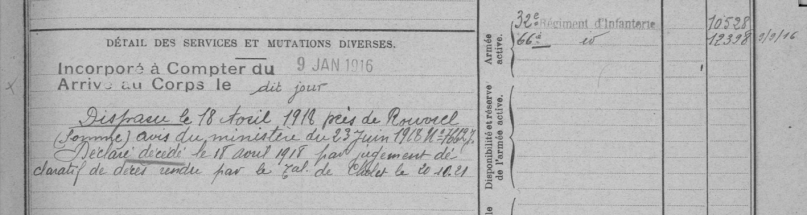 DÉTAIL DES SERVICES ET MUTATIONS DIVERSES.
Incorporé à Compter du 9 JAN 1916
Arrivé au Corps le dit jour
Disparu le 18 Avril 1918 près de Rouvrel
(Somme) avis du ministère du 23 Juin 1918
Déclaré décédé le 18 avril 1918 par jugement dé-
claratif de décès rendu par le Tal. de Cholet le 20.10.21
Armée
active.
32e Régiment d'Infanterie 10528
66e id 12398
Disponibilité et réserve
de l'armée active.